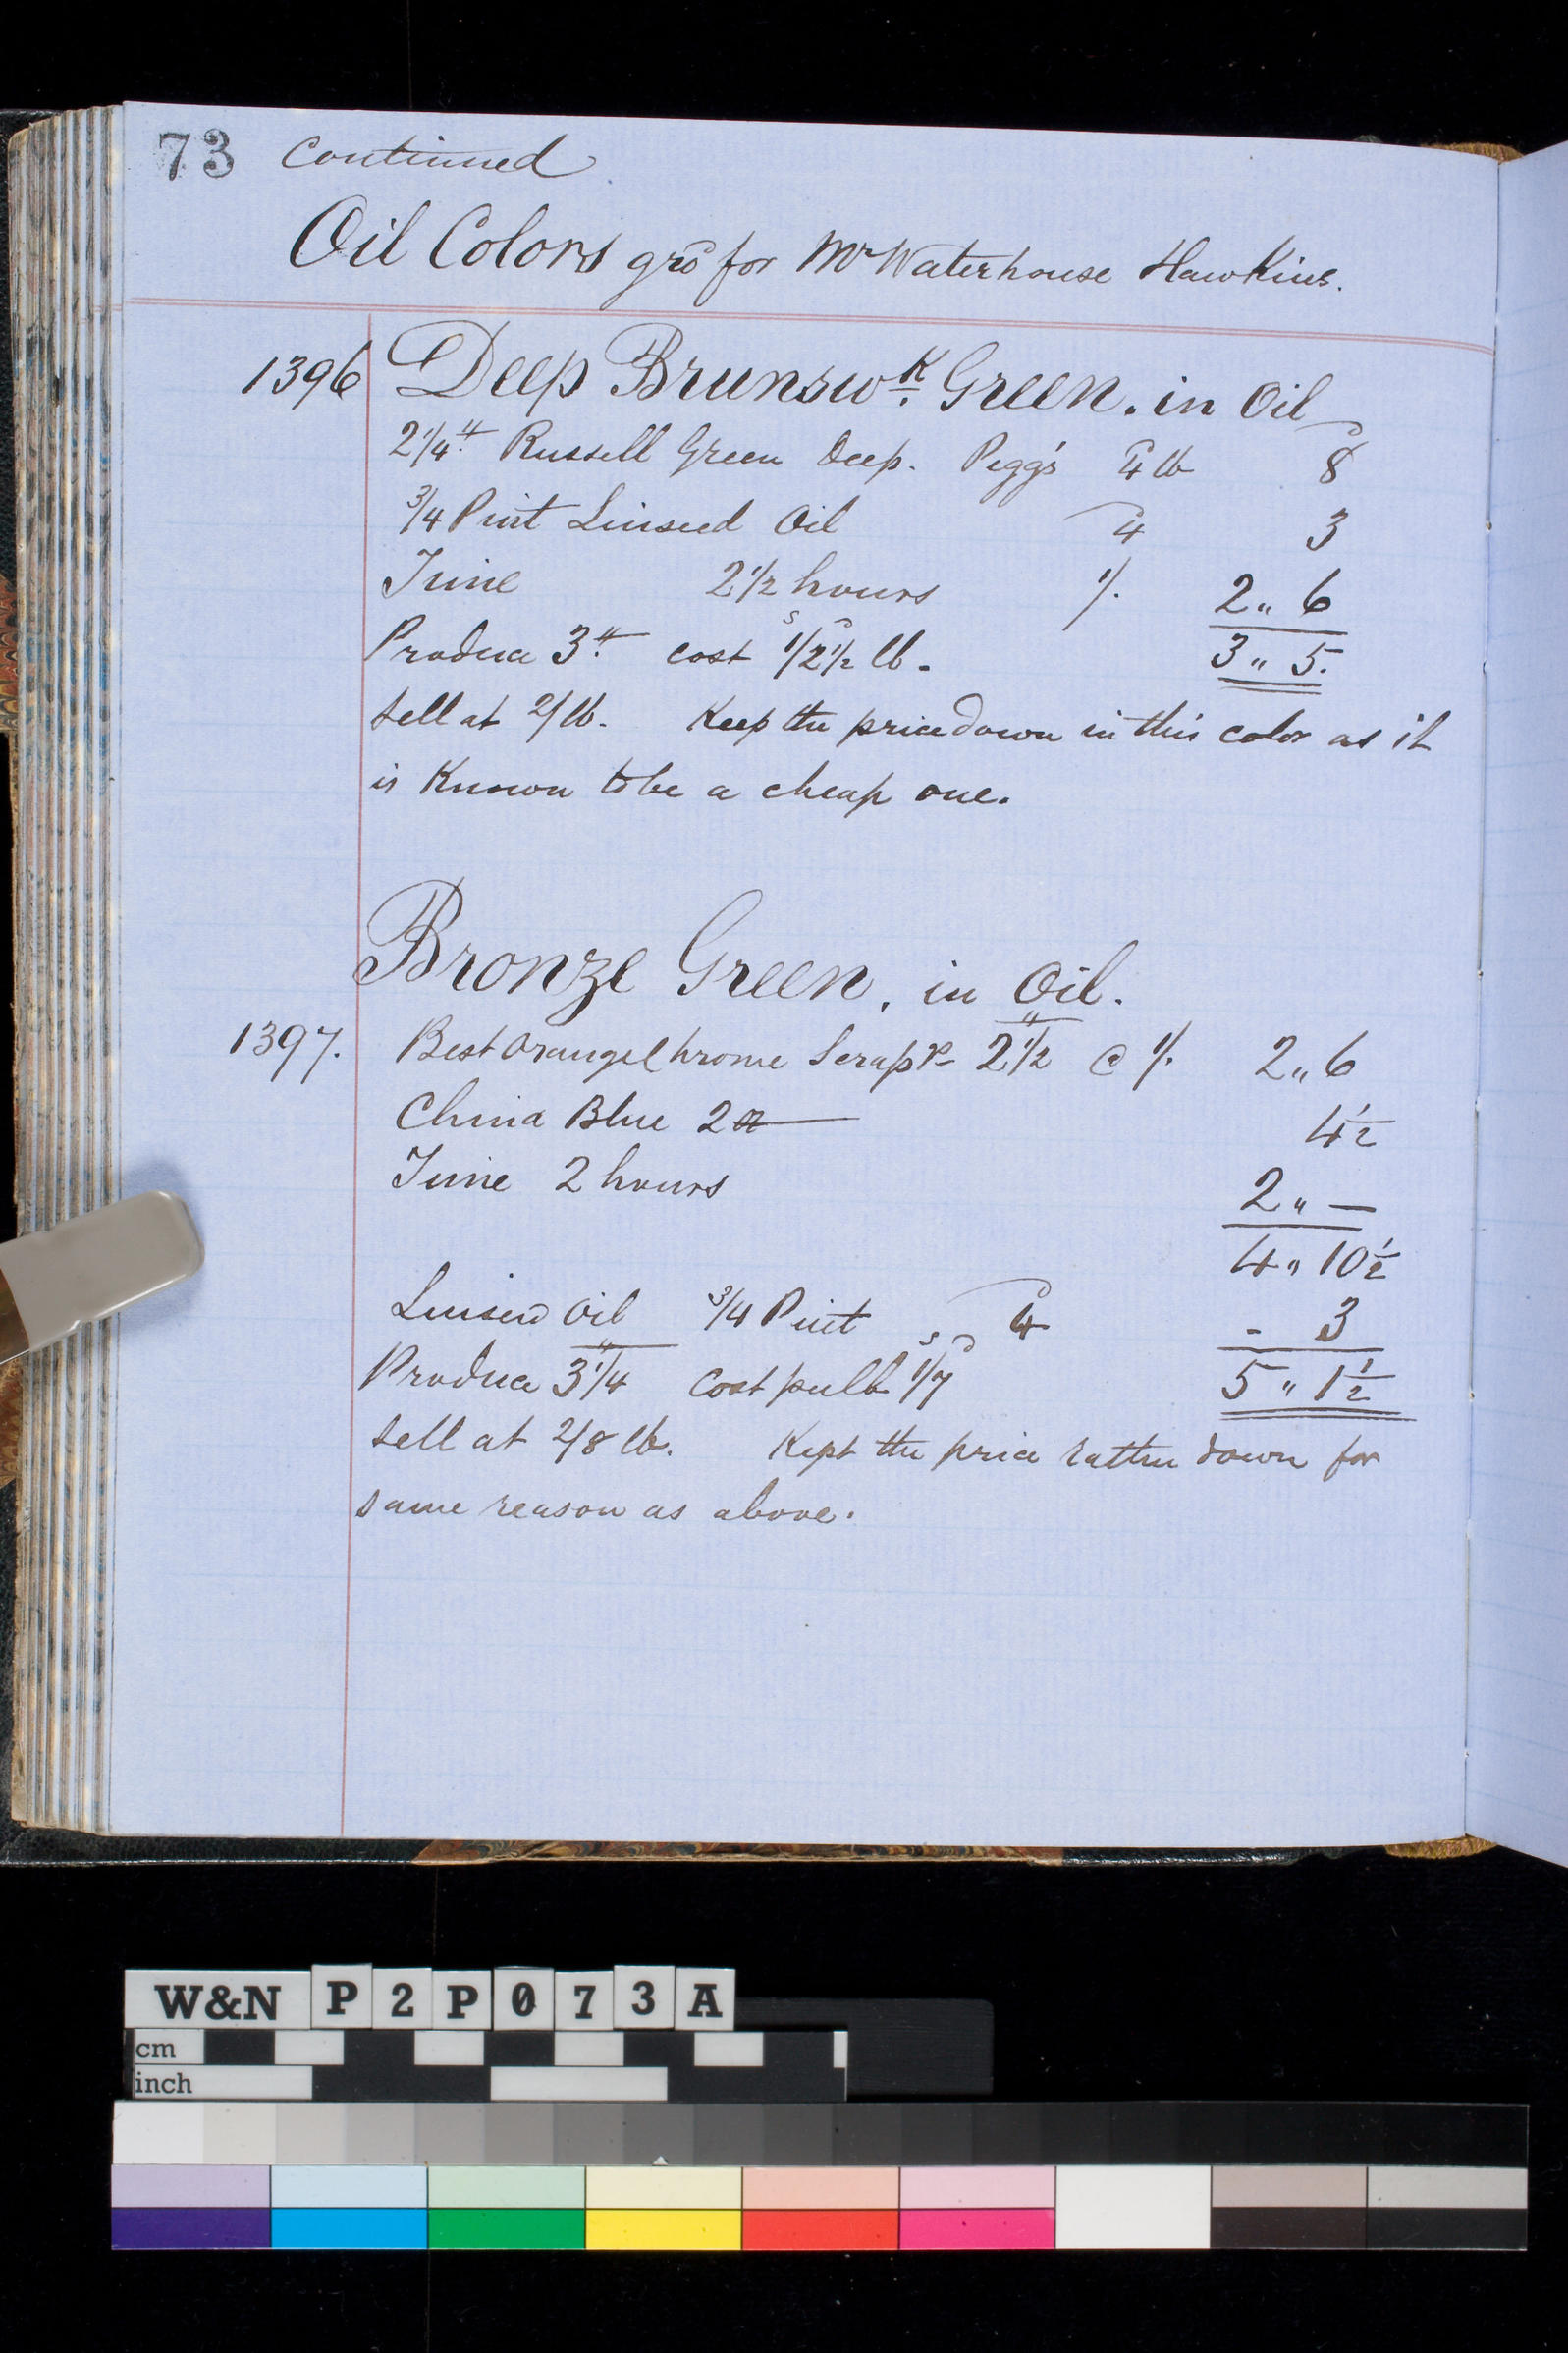 73 continued
Oil Colors gro for Mr Waterhouse Hawkins.
1396 Deep Brunswk Green. in Oil
2 1/4 lb Russell Green Deep. Pegg's 4 lb 8
3/4 Pint Linseed Oil 4 3
Time 2 1/2 hours 1/. 2 " 6
Produce 3 lb cost 1/2 1/2 lb. 3 " 5.
Sell at 2/ lb. Keep the price down in this color as it
is Known to be a cheap one.
Bronze Green, in Oil.
1397. Best Orange Chrome Scraps 2 1/2 @ 1/. 2 " 6
China Blue 2 oz 4 1/2
Time 2 hours 2 " —
4 " 10 1/2
Linseed Oil 3/4 Pint 4 - 3
Produce 3 1/4 cost per lb 1/7 5 " 1 1/2
Sell at 2/8 lb. Kept the price rather down for
same reason as above.
W&N P2P073A
cm
inch